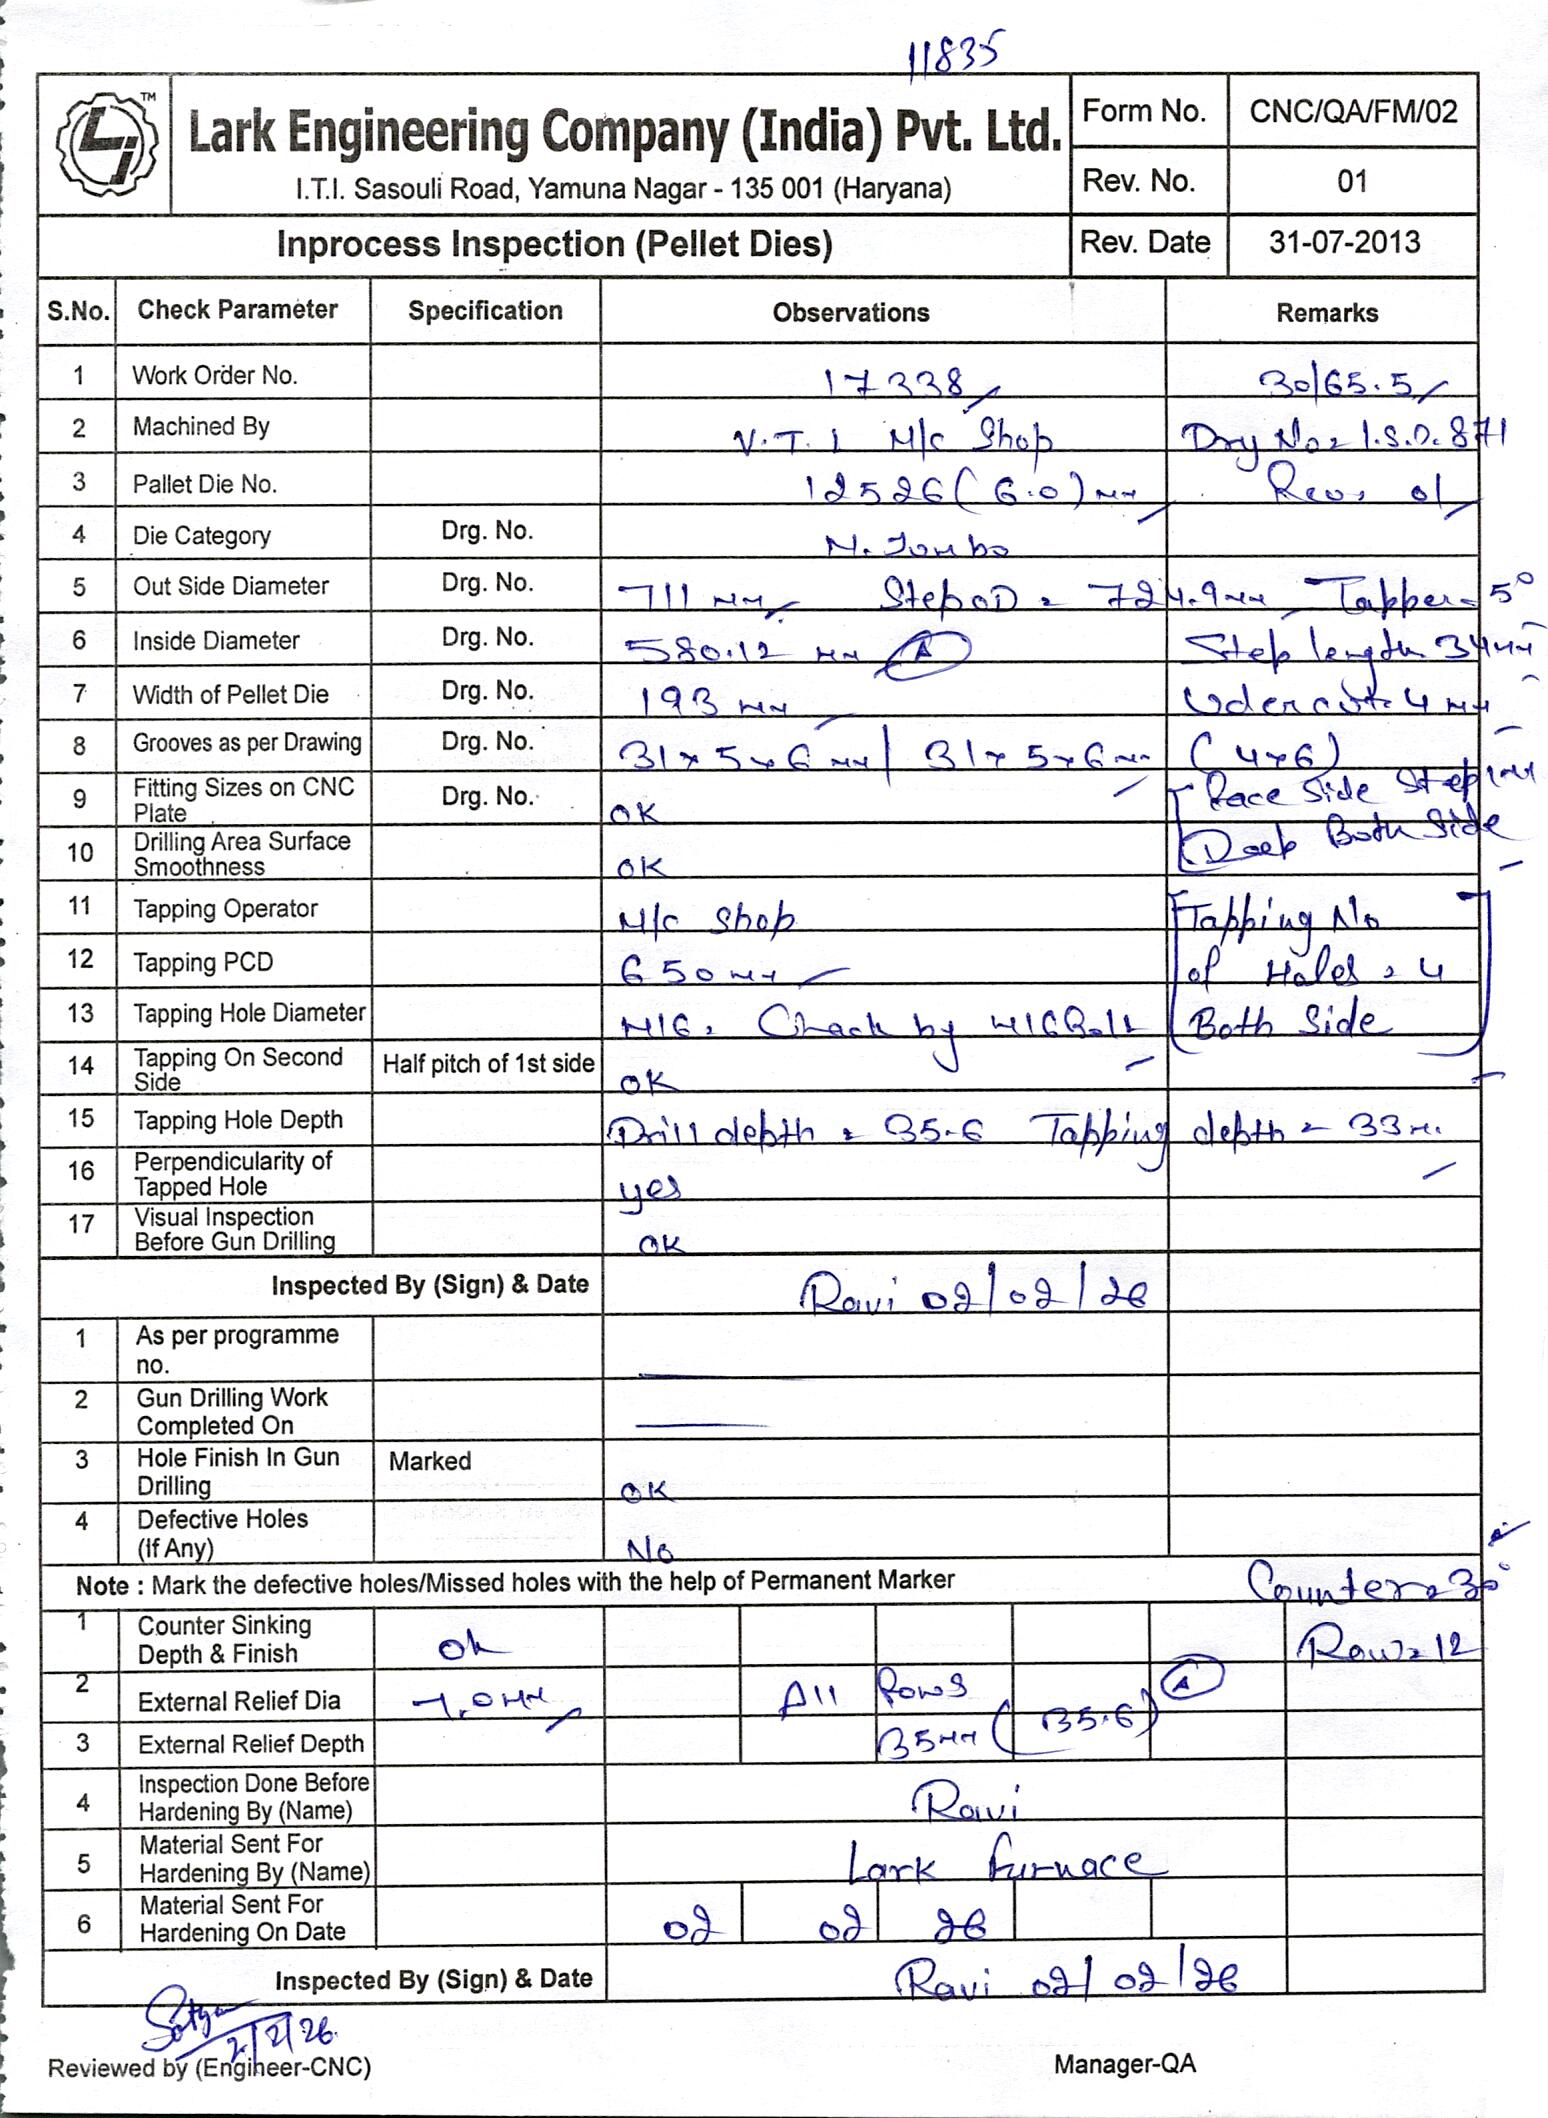 11835
TM
Lark Engineering Company (India) Pvt. Ltd.
I.T.I. Sasouli Road, Yamuna Nagar - 135 001 (Haryana)
Form No. CNC/QA/FM/02
Rev. No. 01
Inprocess Inspection (Pellet Dies) Rev. Date 31-07-2013
S.No. Check Parameter Specification Observations Remarks
1 Work Order No. 17338 30/65.5
2 Machined By V.T.I M/c Shop Drg No = I.S.D. 871
3 Pallet Die No. 12526 (6.0) mm Rev = 01
4 Die Category Drg. No. M. Jumbo
5 Out Side Diameter Drg. No. 711 mm Step OD = 724.9 mm Tapper = 5°
6 Inside Diameter Drg. No. 580.12 mm A Step length = 34 mm
7 Width of Pellet Die Drg. No. 193 mm Udercut = 4 mm
8 Grooves as per Drawing Drg. No. 31 x 5 x 6 mm / 31 x 5 x 6 mm (4x6)
9 Fitting Sizes on CNC Plate Drg. No. OK Face Side Step 1 mm
10 Drilling Area Surface Smoothness OK Deep Both Side
11 Tapping Operator M/c Shop Tapping No
12 Tapping PCD 650 mm of Holes = 4
13 Tapping Hole Diameter M16, Check by M16 Bolt Both Side
14 Tapping On Second Side Half pitch of 1st side OK
15 Tapping Hole Depth Drill depth = 35.6 Tapping depth = 33 m.
16 Perpendicularity of Tapped Hole yes
17 Visual Inspection Before Gun Drilling OK
Inspected By (Sign) & Date Ravi 02/02/26
1 As per programme no.
2 Gun Drilling Work Completed On
3 Hole Finish In Gun Drilling Marked OK
4 Defective Holes (If Any) No
Note : Mark the defective holes/Missed holes with the help of Permanent Marker Counter = 30°
1 Counter Sinking Depth & Finish ok Row = 12
2 External Relief Dia 7.0 mm All Rows A
3 External Relief Depth 35 mm (35.6)
4 Inspection Done Before Hardening By (Name) Ravi
5 Material Sent For Hardening By (Name) Lark furnace
6 Material Sent For Hardening On Date 02 02 26
Inspected By (Sign) & Date Ravi 02/02/26
Satya
2/2/26
Reviewed by (Engineer-CNC) Manager-QA